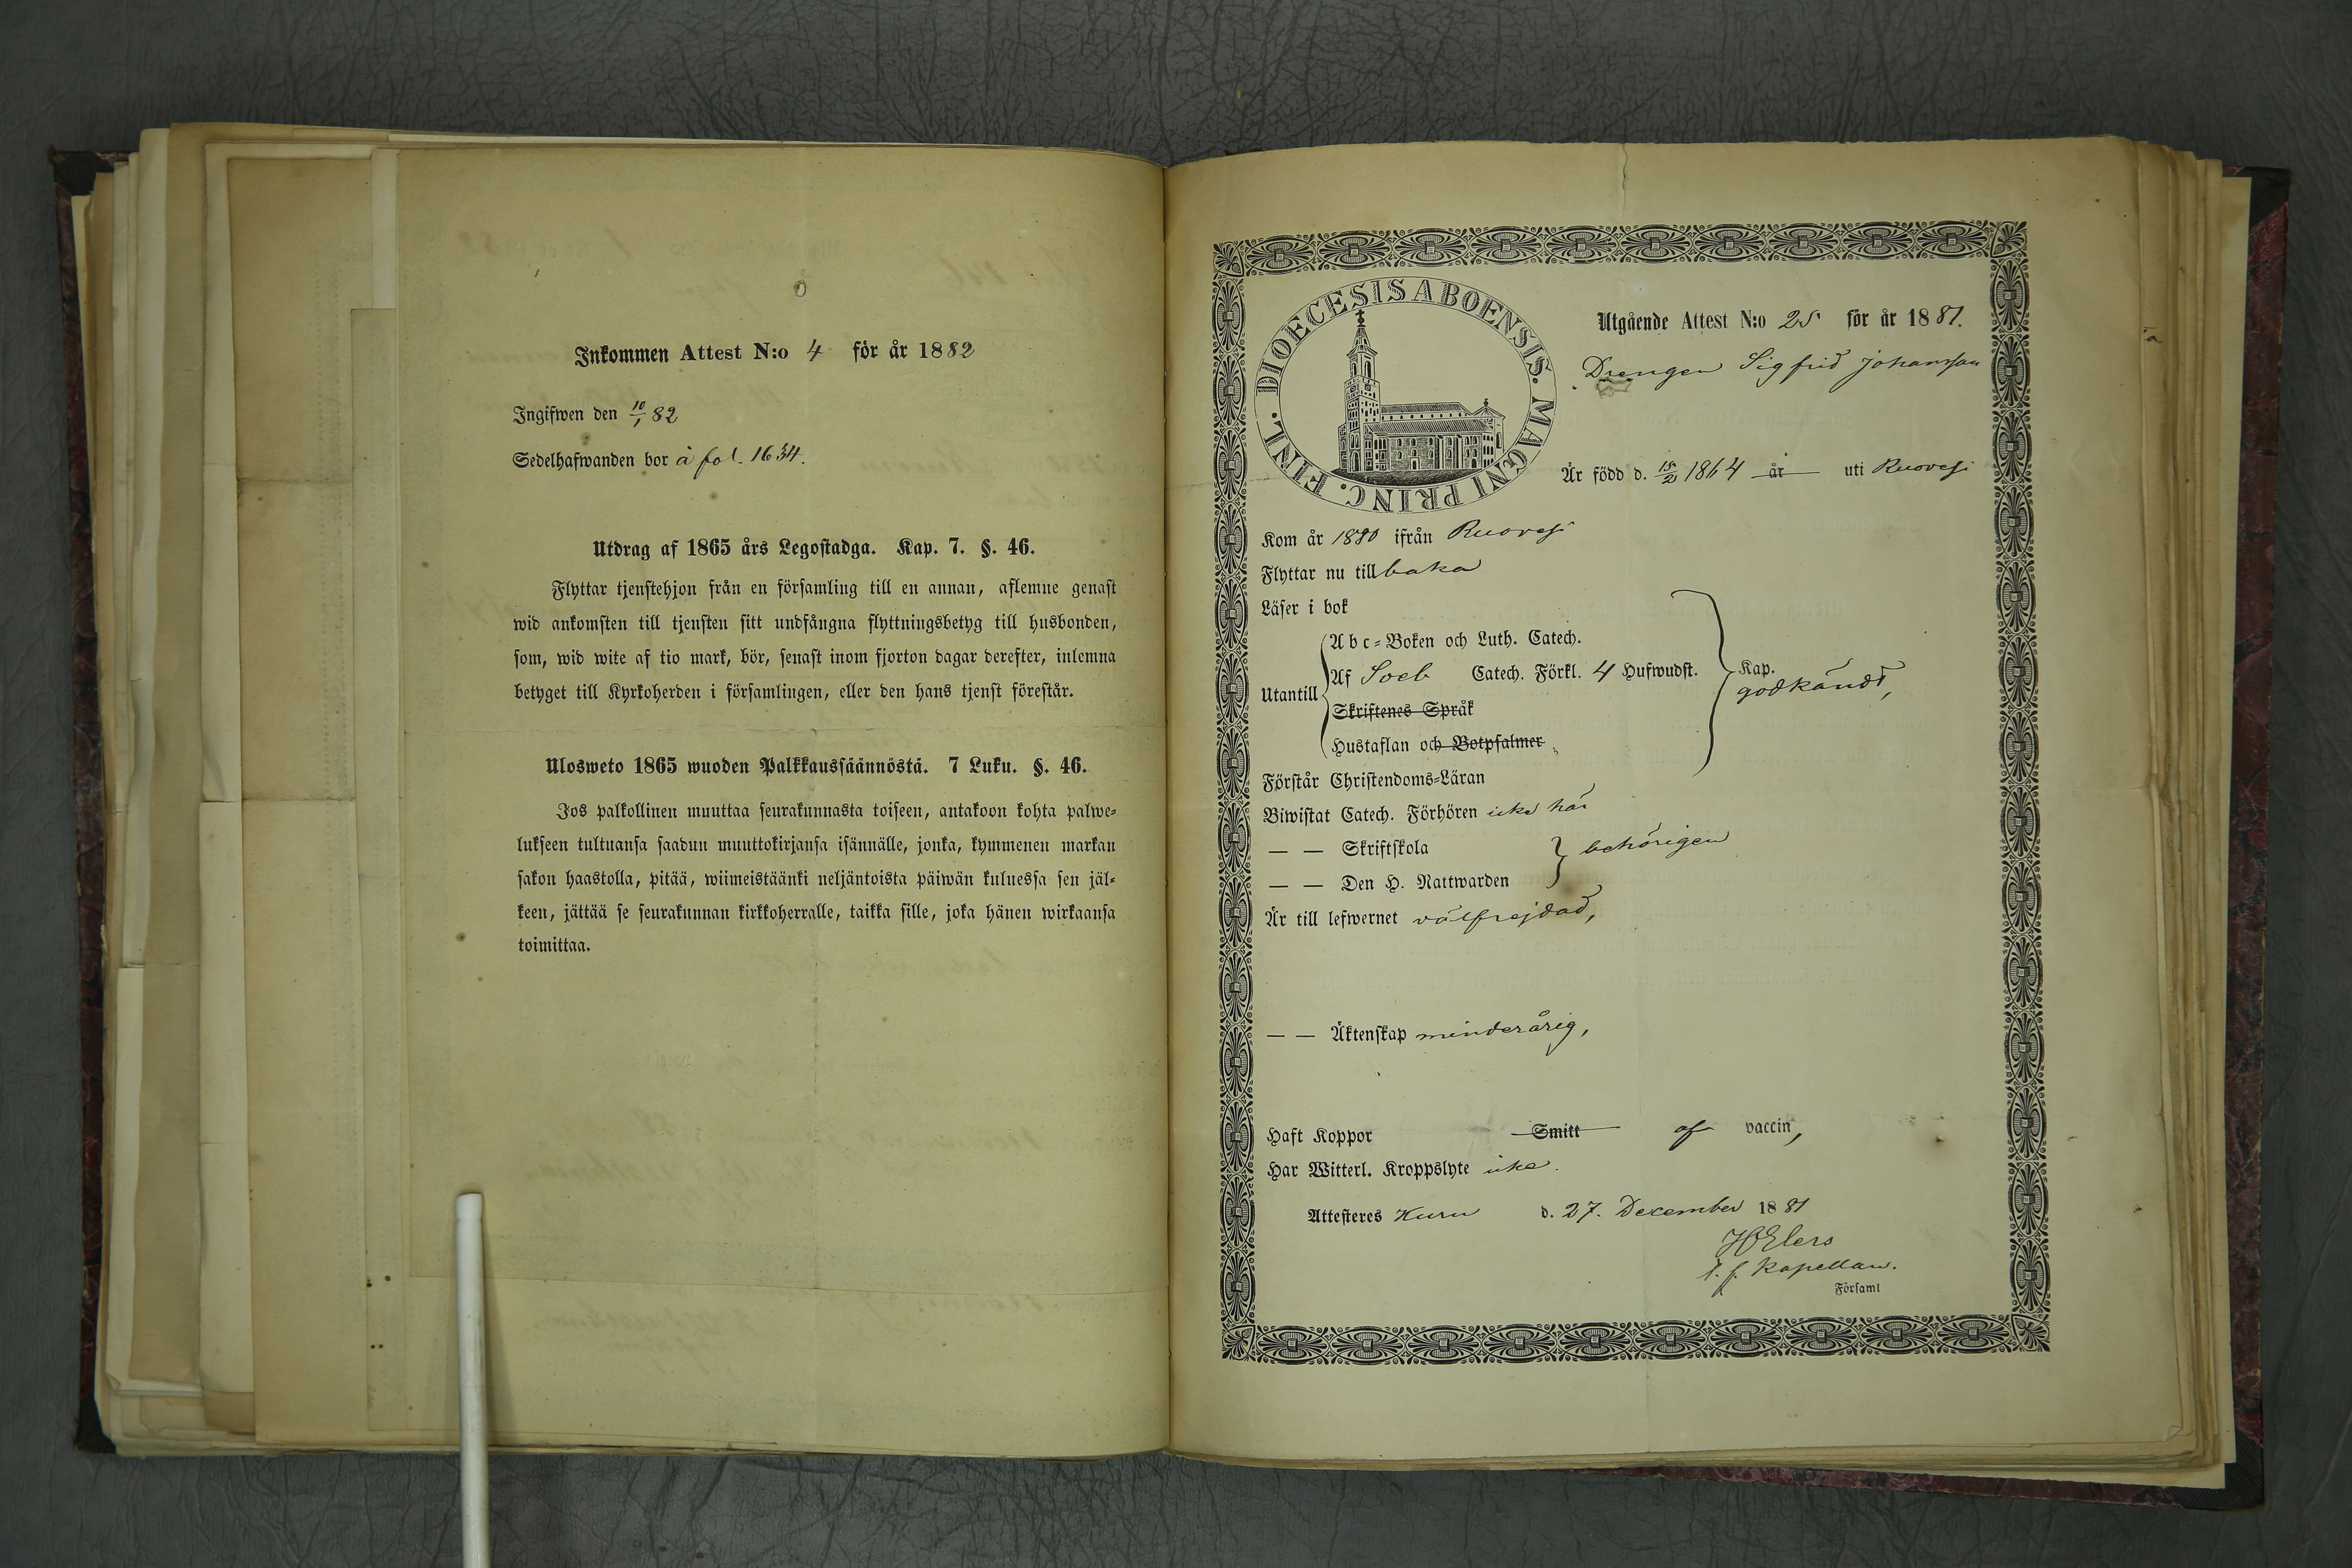 Inkommen Attest N:o 4 för år 1882
Ingifwen den 10/1 82
Sedelhafwanden bor à fol. 1634.
Utdrag af 1865 års Legostadga. Kap. 7. §. 46.
Flyttar tjenstehjon från en församling till en annan, aflemne genast
wid ankomsten till tjensten sitt undfångna flyttningsbetyg till husbonden,
som, wid wite af tio mark, bör, senast inom fjorton dagar derefter, inlemna
betyget till Kyrkoherden i församlingen, eller den hans tjenst förestår.
Ulosweto 1865 wuoden Palkkaussäännöstä. 7 Luku. §. 46.
Jos palkollinen muuttaa seurakunnasta toiseen, antakoon kohta palwe-
lukseen tultuansa saadun muuttokirjansa isännälle, jonka, kymmenen markan
sakon haastolla, pitää, wiimeistäänki neljäntoista päiwän kuluessa sen jäl-
keen, jättää se seurakunnan kirkkoherralle, taikka sille, joka hänen wirkaansa
toimittaa.
DIOECESIS ABOENSIS. MAGNI PRINC. FINL.
Utgående Attest N:o 25 för år 1881.
Drengen Sigfrid Johansson
Är född d. 15/2 1864 år uti Ruovesi
Kom år 1880 ifrån Ruovesi
Flyttar nu till baka
Läser i bok
Abc-Boken och Luth. Catech.
Utantill Af Soeb Catech. Förkl. 4 Hufwudst. Kap.
godkändt,
Skriftenes Språk
Hustaflan och Botpsalmer
Förstår Christendoms-Läran
Biwistat Catech. Förhören icke här
— — Skriftskola behörigen
— — Den H. Nattwarden
Är till lefwernet välfrejdad,
— — Äktenskap minderårig,
Haft Koppor Smitt af vaccin,
Har Witterl. Kroppslyte icke.
Attesteres Kuru d. 27. December 1881
HElers
t. f. Kapellan.
Församl